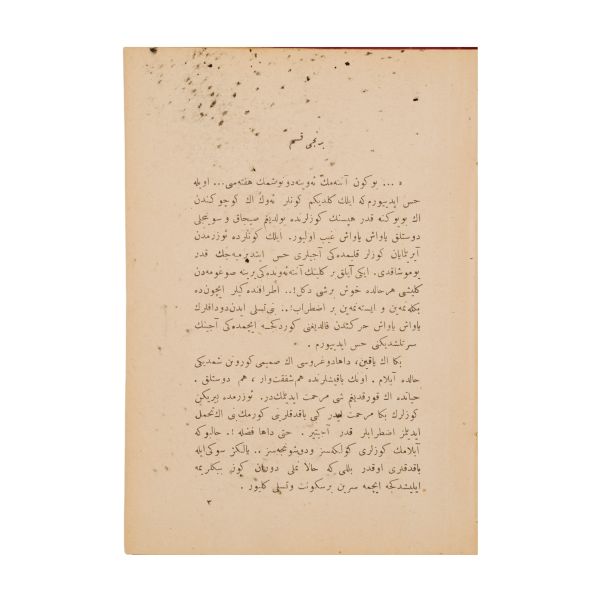 برنجی قسم
... بوكون آننه‌مك ئه‌وینه دونوشمك هفته‌سی... اویله
حس ایدییورم كه ایلك كلدیكم كونلر ئه‌وك اك كوچوكندن
اك بویوكنه قدر هپسنك كوزلرنده بولدیغم صیجاق و سوینجلی
دوستلق یاواش یاواش غیب اولیور. ایلك كونلرده ئوزرمدن
آیریلمایان كوزلر قلبمده‌كی آجیلری حس ایتدیرمیه‌جك قدر
یوموشاقدی. ایكی آیلق بر كلینك آننه ئه‌ونده‌كی یرینه صوغومه‌دن
كلیشی هر حالده خوش برشی دكل!.. اطرافنده‌كیلر ایچون ده
بكله‌نمه‌ین و ایسته‌نمه‌ین بر اضطراب!.. بنی تسلی ایدن دوداقلرك
یاواش یاواش حركتدن قالدیغنی كوردكجه ایچمده‌كی آجینك
سرتلشدیكنی حس ایدییورم .
بكا اك یاقین، داها دوغروسی اك صمیمی كورونن شمدیكی
حالده آبلام . اونك باقیشلرنده هم شفقت وار ، هم دوستلق .
حیاتده اك قورقدیغم شی مرحمت ایدیلمكدر. ئوزرمده دیریكن
كوزلرك بكا مرحمت ایدر كبی باقدقلرینی كورمك بنی اك تحمل
ایدیلمز اضطرابلر قدر آجیتیر . حتی داها فضله !. حالبوكه
آبلامك كوزلری كولكه‌سز و دوشونجه‌سز .. یالكز سوكی ایله
باقدقلری اوقدر بللی كه حالا نملی دوران كون ببكلریمه
ایلیشدكجه ایچمه سرین بر سكونت و تسلی كلیور .
٣